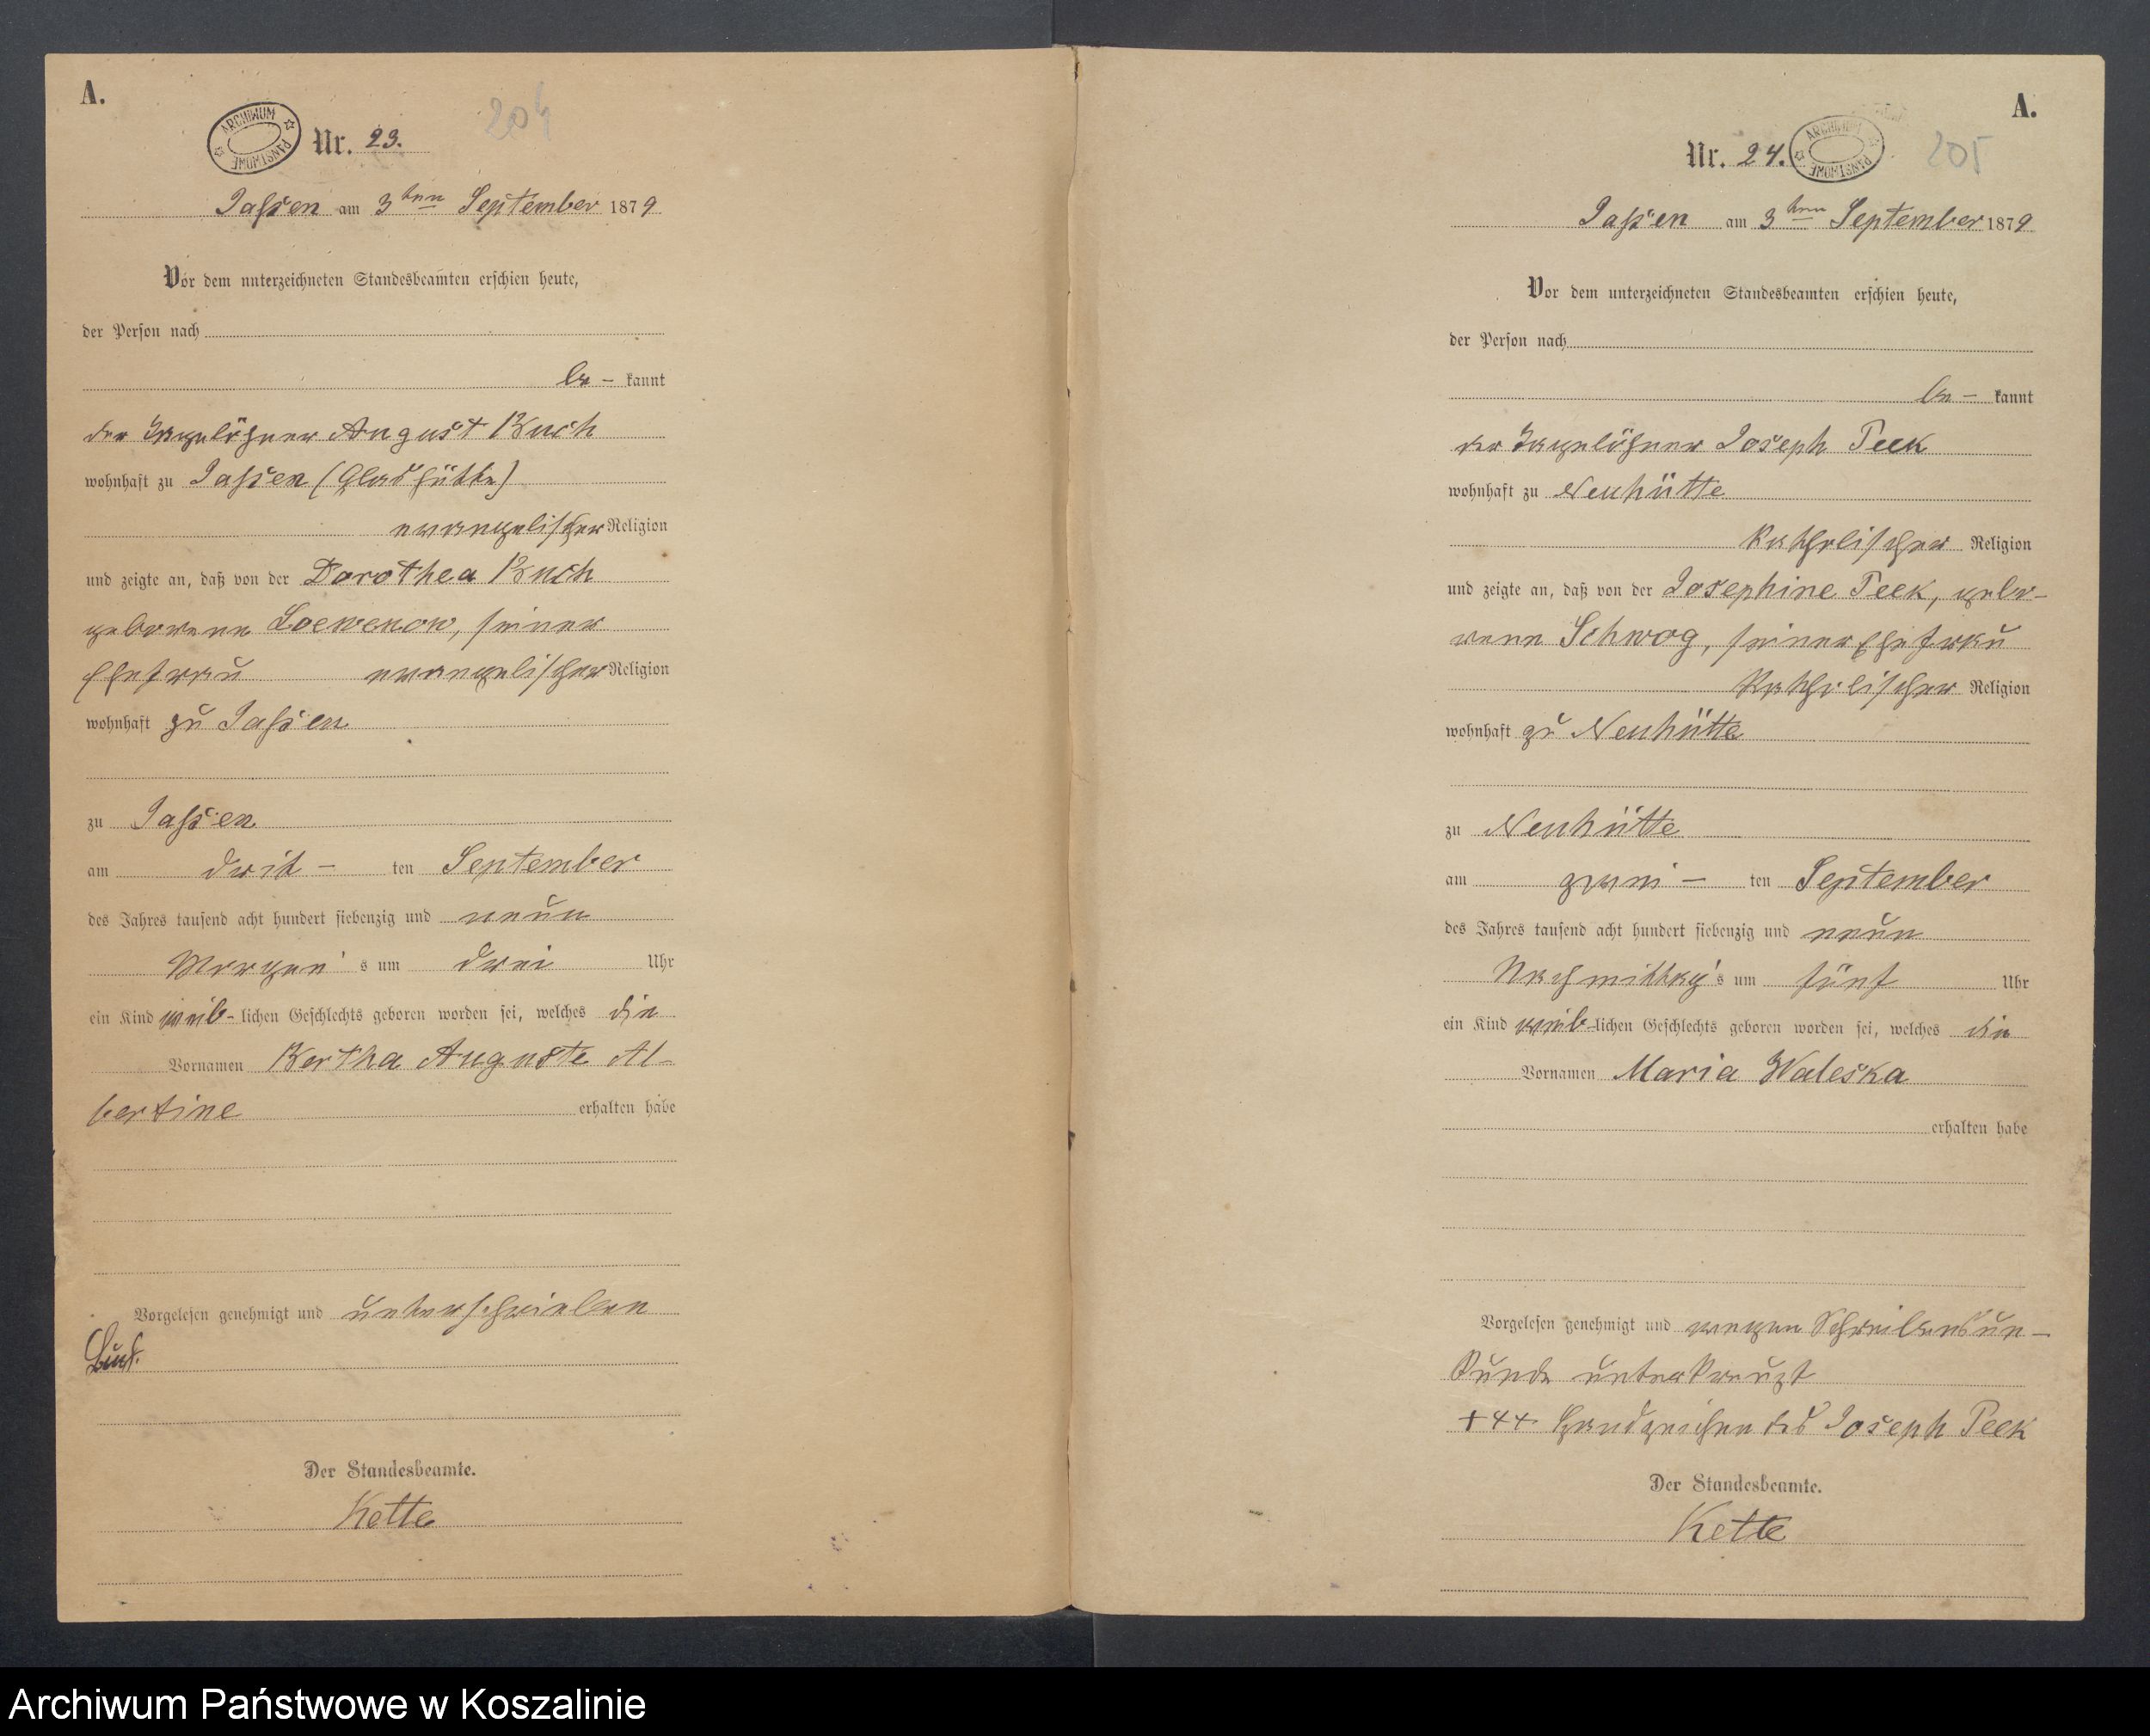 A.
ARCHIWUM PAŃSTWOWE
Nr. 23.
204
Jassen am 3ten September 1879
Vor dem unterzeichneten Standesbeamten erschien heute,
der Person nach
be- kannt
der Tagelöhner August Buch
wohnhaft zu Jassen (Glashütte)
evangelischer Religion
und zeigte an, daß von der Dorothea Buch
geborene Loewenow, seiner
Ehefrau evangelischer Religion
wohnhaft zu Jassen
zu Jassen
am drit- ten September
des Jahres tausend acht hundert siebenzig und neun
Morgen's um drei Uhr
ein Kind weib-lichen Geschlechts geboren worden sei, welches die
Vornamen Bertha Auguste Al-
bertine erhalten habe
Vorgelesen genehmigt und unterschrieben
Buch.
Der Standesbeamte.
Kette
A.
Nr. 24.
ARCHIWUM PAŃSTWOWE
205
Jassen am 3ten September 1879
Vor dem unterzeichneten Standesbeamten erschien heute,
der Person nach
be- kannt
der Tagelöhner Joseph Peek
wohnhaft zu Neuhütte
katholischer Religion
und zeigte an, daß von der Josephine Peek, gebo-
rene Schwog, seiner Ehefrau
katholischer Religion
wohnhaft zu Neuhütte
zu Neuhütte
am zwei- ten September
des Jahres tausend acht hundert siebenzig und neun
Nachmittag's um fünf Uhr
ein Kind weib-lichen Geschlechts geboren worden sei, welches die
Vornamen Maria Waleska
erhalten habe
Vorgelesen genehmigt und wegen Schreibensun-
kunde unterkreuzt
+++ Handzeichen des Joseph Peek
Der Standesbeamte.
Kette
Archiwum Państwowe w Koszalinie